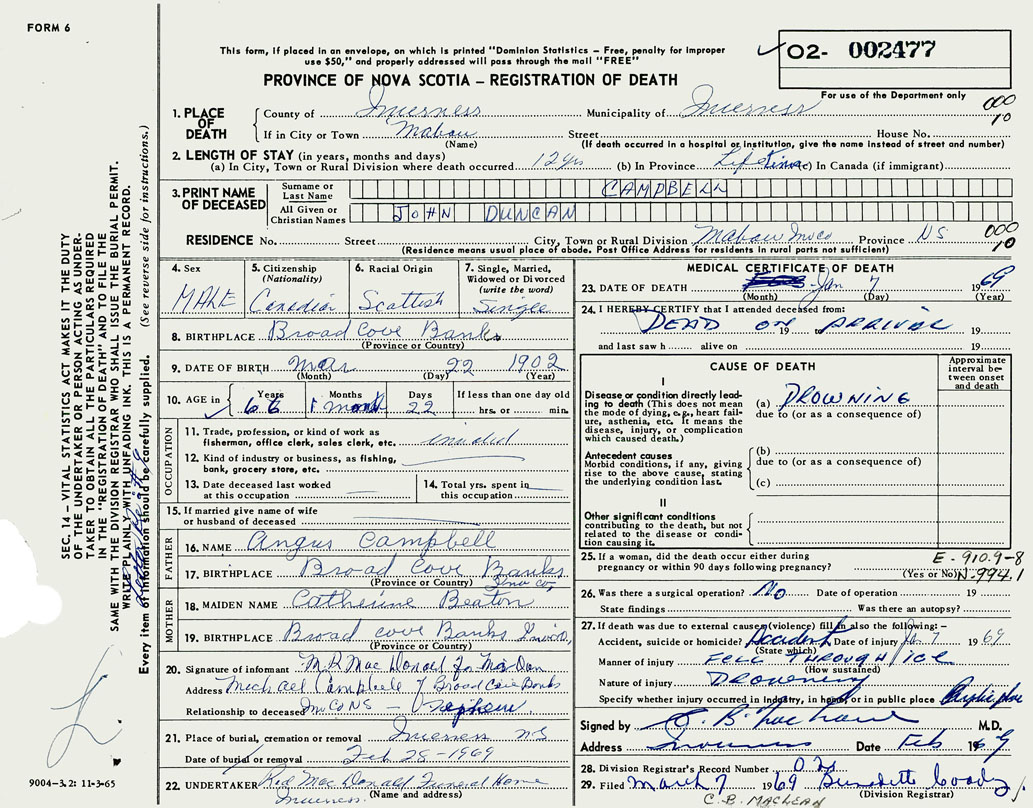 FORM 6
This form, if placed in an envelope, on which is printed "Dominion Statistics – Free, penalty for improper
use $50," and properly addressed will pass through the mail "FREE"
PROVINCE OF NOVA SCOTIA – REGISTRATION OF DEATH
02- 002477
For use of the Department only
1. PLACE OF DEATH
County of Inverness Municipality of Inverness
000
10
If in City or Town Mabou Street House No.
(Name) (If death occurred in a hospital or institution, give the name instead of street and number)
2. LENGTH OF STAY (in years, months and days)
(a) In City, Town or Rural Division where death occurred 12 yrs (b) In Province Lifetime (c) In Canada (if immigrant)
3. PRINT NAME OF DECEASED
Surname or Last Name CAMPBELL
All Given or Christian Names JOHN DUNCAN
RESIDENCE No. Street City, Town or Rural Division Mabou Inv Co Province NS
000
10
(Residence means usual place of abode. Post Office Address for residents in rural parts not sufficient)
4. Sex MALE
5. Citizenship (Nationality) Canadian
6. Racial Origin Scottish
7. Single, Married, Widowed or Divorced (write the word) Single
8. BIRTHPLACE Broad Cove Banks
(Province or Country)
9. DATE OF BIRTH Mar 22 1902
(Month) (Day) (Year)
10. AGE in Years 66 Months 1 month Days 22 If less than one day old hrs. or min.
OCCUPATION
11. Trade, profession, or kind of work as fisherman, office clerk, sales clerk, etc.
12. Kind of industry or business, as fishing, bank, grocery store, etc.
13. Date deceased last worked at this occupation
14. Total yrs. spent in this occupation
15. If married give name of wife or husband of deceased
FATHER
16. NAME Angus Campbell
17. BIRTHPLACE Broad Cove Banks
(Province or Country) Inv Co,
MOTHER
18. MAIDEN NAME Catherine Beaton
19. BIRTHPLACE Broad Cove Banks Inv Co,
(Province or Country)
20. Signature of informant M.R. Mac Donald
Address Michael Campbell Broad Cove Banks
Relationship to deceased Inv Co NS – Nephew
21. Place of burial, cremation or removal Inverness NS
Date of burial or removal Feb 28-1969
22. UNDERTAKER Rod Mac Donald Funeral Home
(Name and address)
Inverness.
MEDICAL CERTIFICATE OF DEATH
23. DATE OF DEATH Jan 7 1969
(Month) (Day) (Year)
24. I HEREBY CERTIFY that I attended deceased from:
DEAD ON ARRIVAL
19 19
and last saw h alive on 19
CAUSE OF DEATH
Approximate interval between onset and death
I
Disease or condition directly leading to death (This does not mean the mode of dying, e.g., heart failure, asthenia, etc. It means the disease, injury, or complication which caused death.)
(a) DROWNING
due to (or as a consequence of)
Antecedent causes
Morbid conditions, if any, giving rise to the above cause, stating the underlying condition last.
(b)
due to (or as a consequence of)
(c)
II
Other significant conditions
contributing to the death, but not related to the disease or condition causing it.
25. If a woman, did the death occur either during pregnancy or within 90 days following pregnancy?
(Yes or No)
E-910.9-8
N-994.1
26. Was there a surgical operation? No Date of operation 19
State findings Was there an autopsy?
27. If death was due to external causes (violence) fill in also the following:–
Accident, suicide or homicide? Accident Date of injury Jan 7 1969
(State which)
Manner of injury FELL THROUGH ICE
(How sustained)
Nature of injury DROWNING
Specify whether injury occurred in industry, in home, or in public place Public place
Signed by M.D.
Address Inverness Date Feb 1969
28. Division Registrar's Record Number
29. Filed March 7 1969
(Division Registrar)
C. B. MACLEAN
SEC. 14 – VITAL STATISTICS ACT MAKES IT THE DUTY
OF THE UNDERTAKER OR PERSON ACTING AS UNDER-
TAKER TO OBTAIN ALL THE PARTICULARS REQUIRED
IN THE "REGISTRATION OF DEATH" AND TO FILE THE
SAME WITH THE DIVISION REGISTRAR WHO SHALL ISSUE THE BURIAL PERMIT.
WRITE PLAINLY WITH UNFADING INK. THIS IS A PERMANENT RECORD.
Every item of information should be carefully supplied. (See reverse side for instructions.)
9004-3.2: 11-3-65